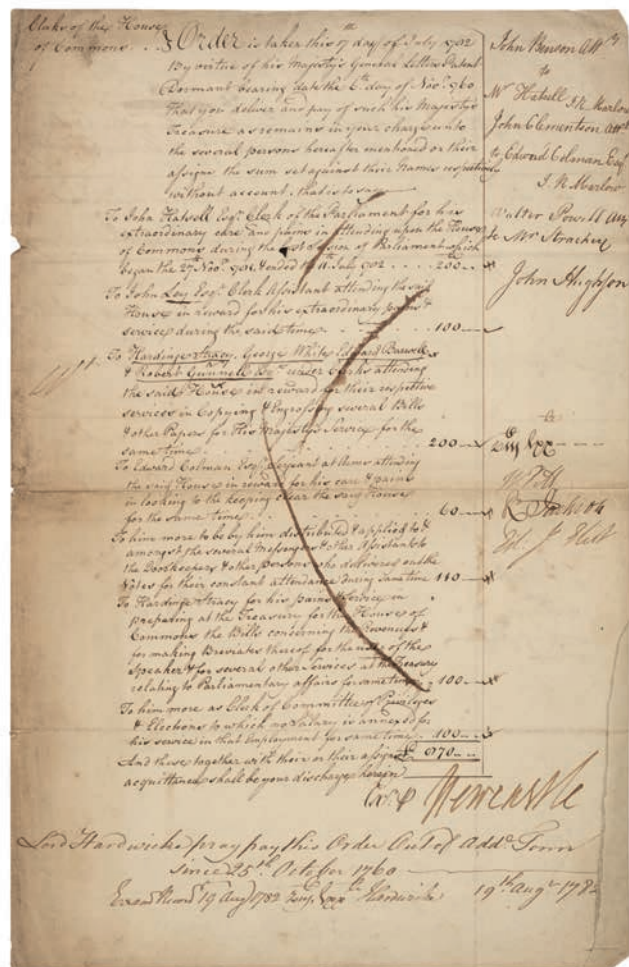 Clerks of the House
of Commons
Order is taken this 17th day of July 1782
By virtue of his Majesty's General Letters Patent
Dormant bearing date the 6th day of Novr. 1760
That you deliver and pay of such his Majesty's
Treasure as remains in your charge unto
the several persons hereafter mentioned or their
assigns the sum set against their Names respectively
without account, that is to say
To John Hatsell Esqr. Clerk of the Parliament for his
extraordinary care and pains in attending upon the House
of Commons during the last Session of Parliament which
began the 27th Novr. & ended the 11th July 200
To John Ley Esqr. Clerk Assistant attending the said
House in reward for his extraordinary pains &
service during the said time 100
To Hardinge Stracey, George White, Edward Barwell
& Robert Gunnell Esqrs. under Clerks attending
the said House in reward for their respective
services in Copying & Engrossing several Bills
& other Papers for His Majesty's Service for the
same time 200
To Edward Colman Esqr. Serjeant at Arms attending
the said House in reward for his care & pains
in looking to the keeping clear the said House
for the same time 60
To him more to be by him distributed & applied to &
amongst the several Messengers & other Assistants to
the Doorkeepers & other persons who delivered out the
Votes for their constant attendance during same time 110
To Hardinge Stracey for his pains & Service in
preparing at the Treasury for the House of
Commons the Bills concerning the Revenues &
for making Breviates thereof for the use of the
Speaker & for several other Services at the Treasury
relating to Parliamentary affairs for same time 100
To him more as Clerk of Committee of Privileges
& Elections to which no Salary is annexed for
his service in that Employment for same time 100
And these together with their or their assigns £
acquittance shall be your discharge herein
John Benson Atty
to
Mr Hatsell J. N. Marlow
John Clementson Atty
to Edward Colman Esqr
J. N. Marlow
Walter Powell Atty
to Mr Stracey
John Hughson
W Pitt
R Jackson
Newcastle
Lord Hardwicke pray pay this Order Out of
since 25th October 1760
19 Augt 1782 Hardwicke 19th Augt 1782